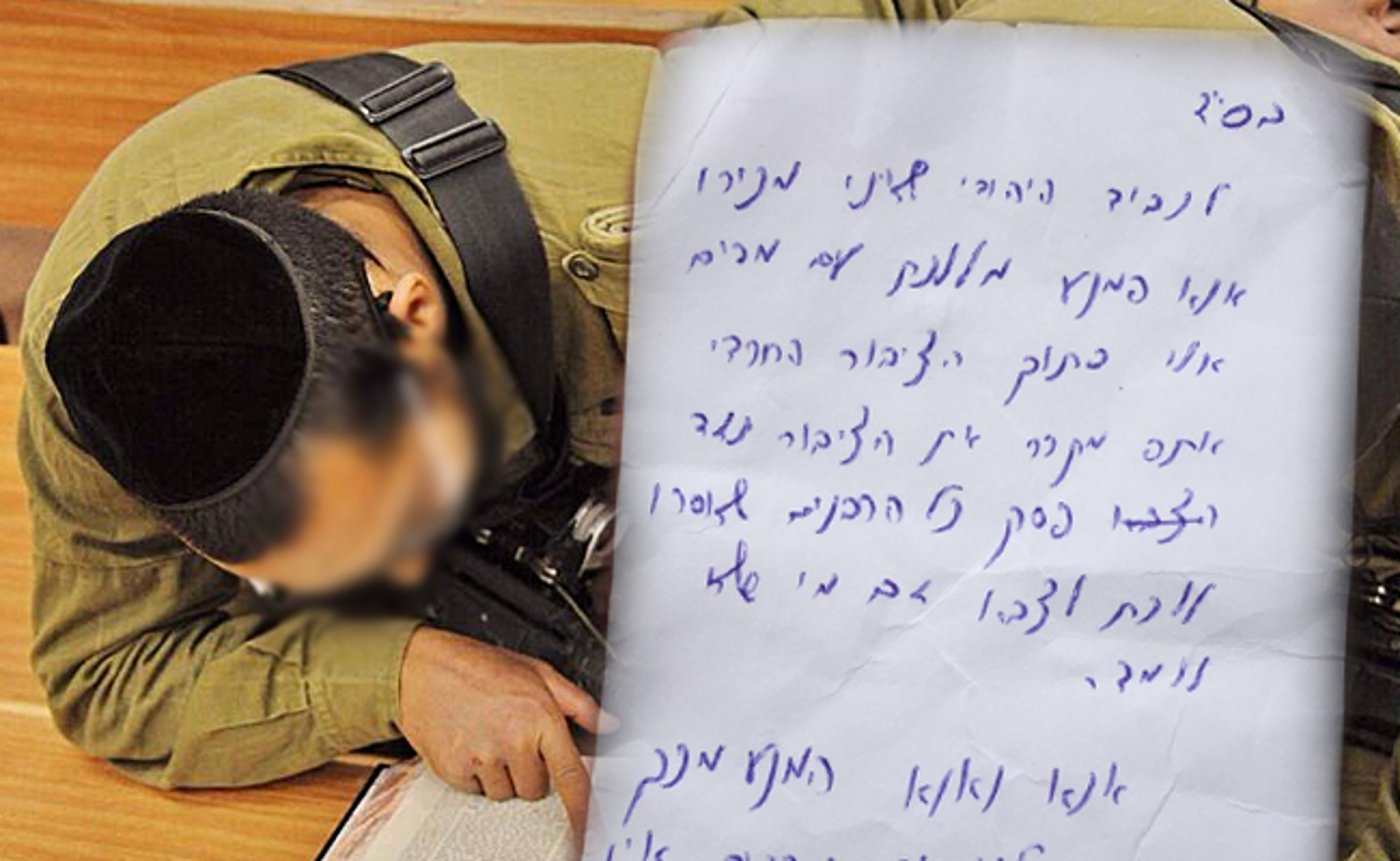 בס"ד
לנביב היהודי שאיני מכירו
אנא המנע מללכת עם מדים
אלו בתוך הציבור החרדי
אתה מקרר את הציבור נגד
פסק כל הרבנים שאסרו
ללכת לצבא גם מי שלא
לומד.
אנא ואנא המנע מכך